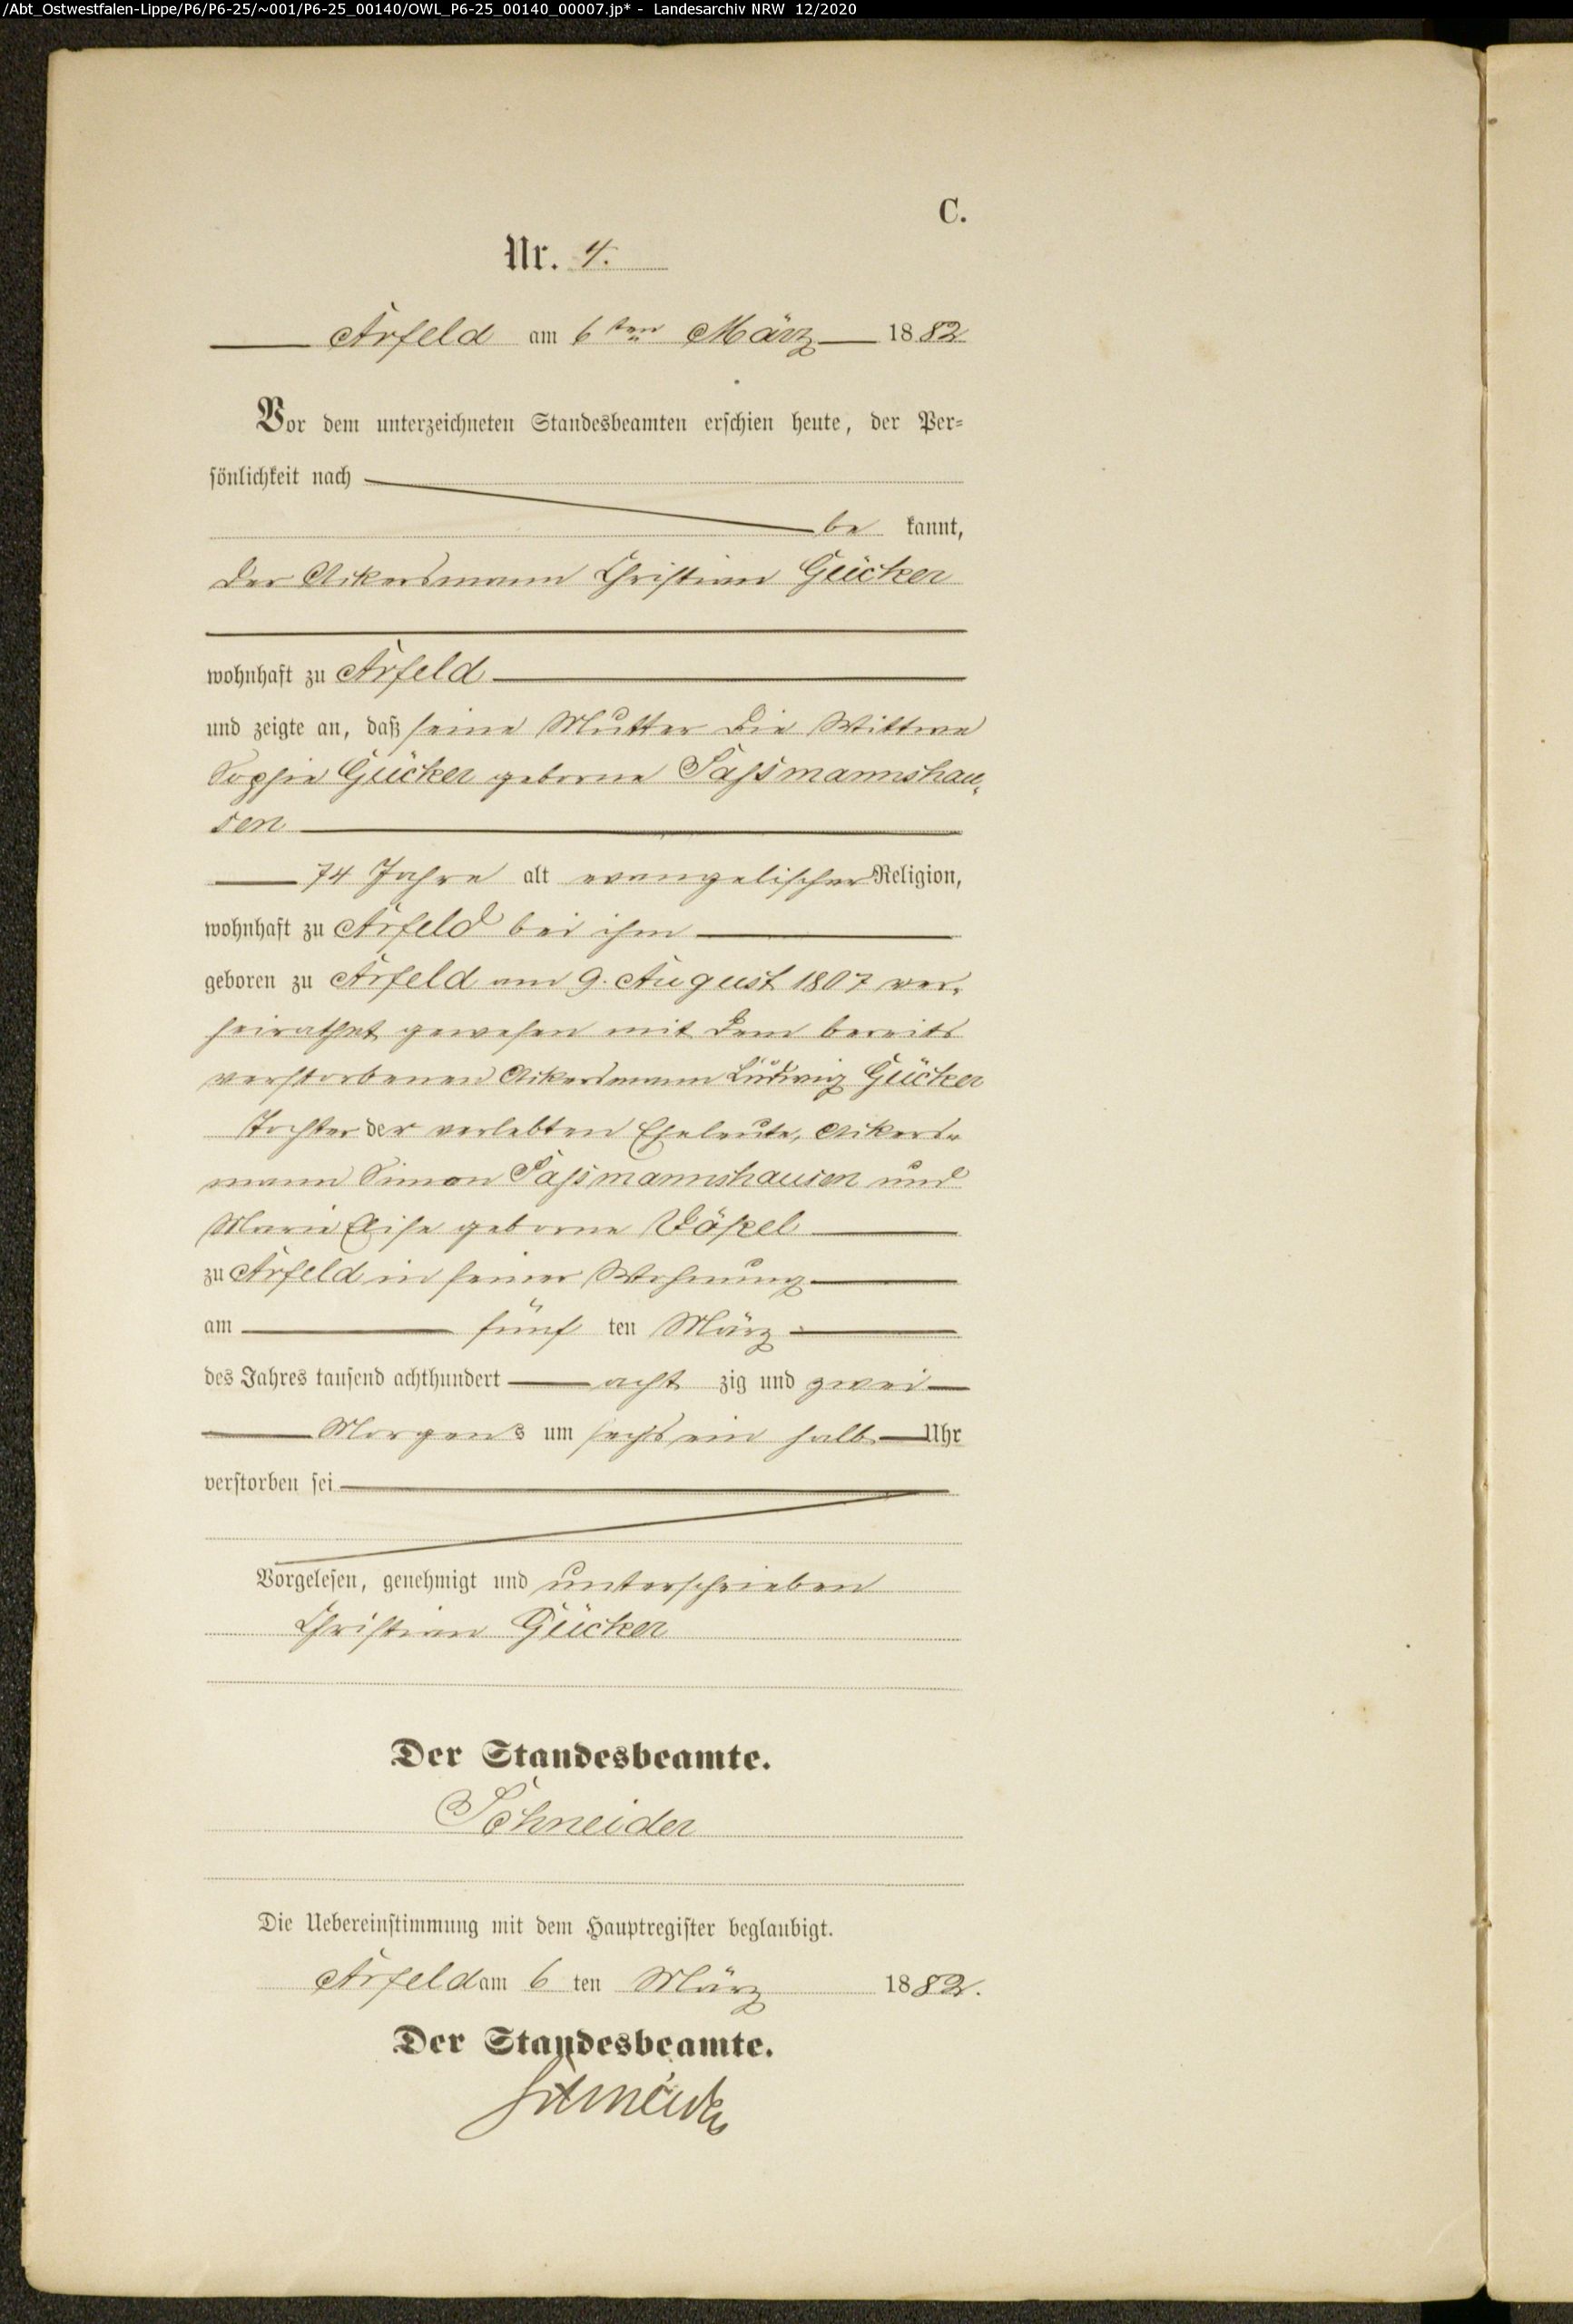 /Abt_Ostwestfalen-Lippe/P6/P6-25/~001/P6-25_00140/OWL_P6-25_00140_00007.jp* - Landesarchiv NRW 12/2020
C.
Nr. 4.
Arfeld am 6ten März 1882
Vor dem unterzeichneten Standesbeamten erschien heute, der Per-
sönlichkeit nach
be kannt,
der Ackersmann Christian Gücker
wohnhaft zu Arfeld
und zeigte an, daß seine Mutter die Wittwe
Sophie Gücker geborne Sassmannshau-
sen
74 Jahre alt evangelischer Religion,
wohnhaft zu Arfeld bei ihm
geboren zu Arfeld am 9. August 1807 ver-
heirathet gewesen mit dem bereits
verstorbenen Ackersmann Ludwig Gücker
Tochter der verlebten Eheleute, Ackers-
mann Simon Sassmannshausen und
Marie Elise geborne Böhel
zu Arfeld in seiner Wohnung
am fünf ten März
des Jahres tausend achthundert acht zig und zwei
Morgens um sechs ein halb Uhr
verstorben sei
Vorgelesen, genehmigt und unterschrieben
Christian Gücker
Der Standesbeamte.
Schneider
Die Uebereinstimmung mit dem Hauptregister beglaubigt.
Arfeld am 6 ten März 1882.
Der Standesbeamte.
Schneider